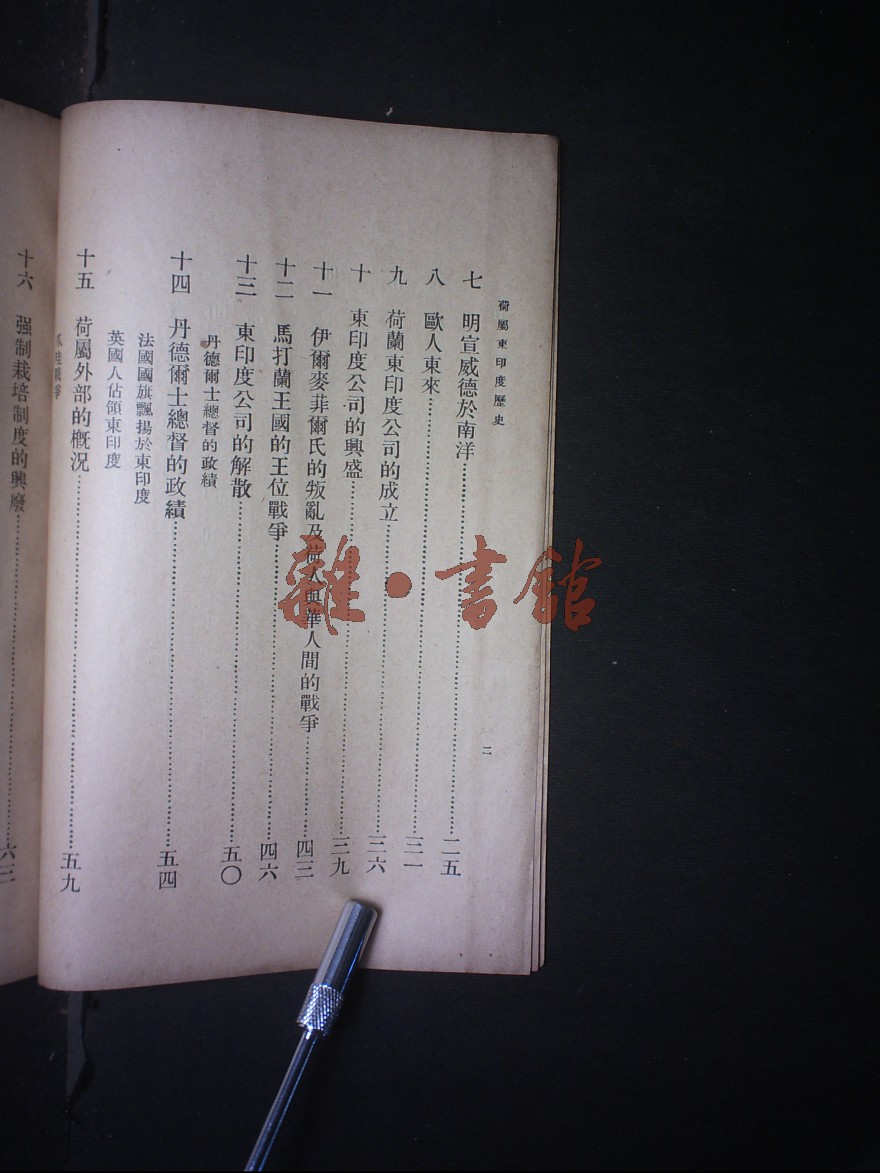 荷屬東印度歷史
二
七 明宣威德於南洋……二五
八 歐人東來……三一
九 荷蘭東印度公司的成立……三六
十 東印度公司的興盛……三九
十一 伊爾麥菲爾氏的叛亂及荷人與華人間的戰爭……四三
十二 馬打蘭王國的王位戰爭……四六
十三 東印度公司的解散……五〇
丹德爾士總督的政績
十四 丹德爾士總督的政績……五四
法國國旗飄揚於東印度
英國人佔領東印度
十五 荷屬外部的概況……五九
戰爭
十六 强制栽培制度的興廢……六三
雜·書館